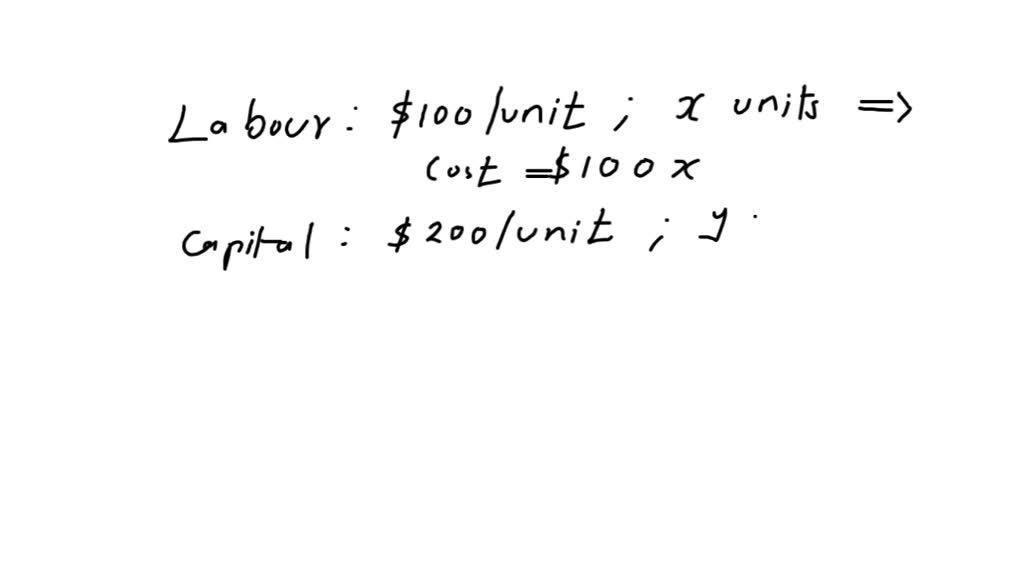 Labour: $100/unit ; x units =>
Cost = $100x
Capital : $200/unit ; y